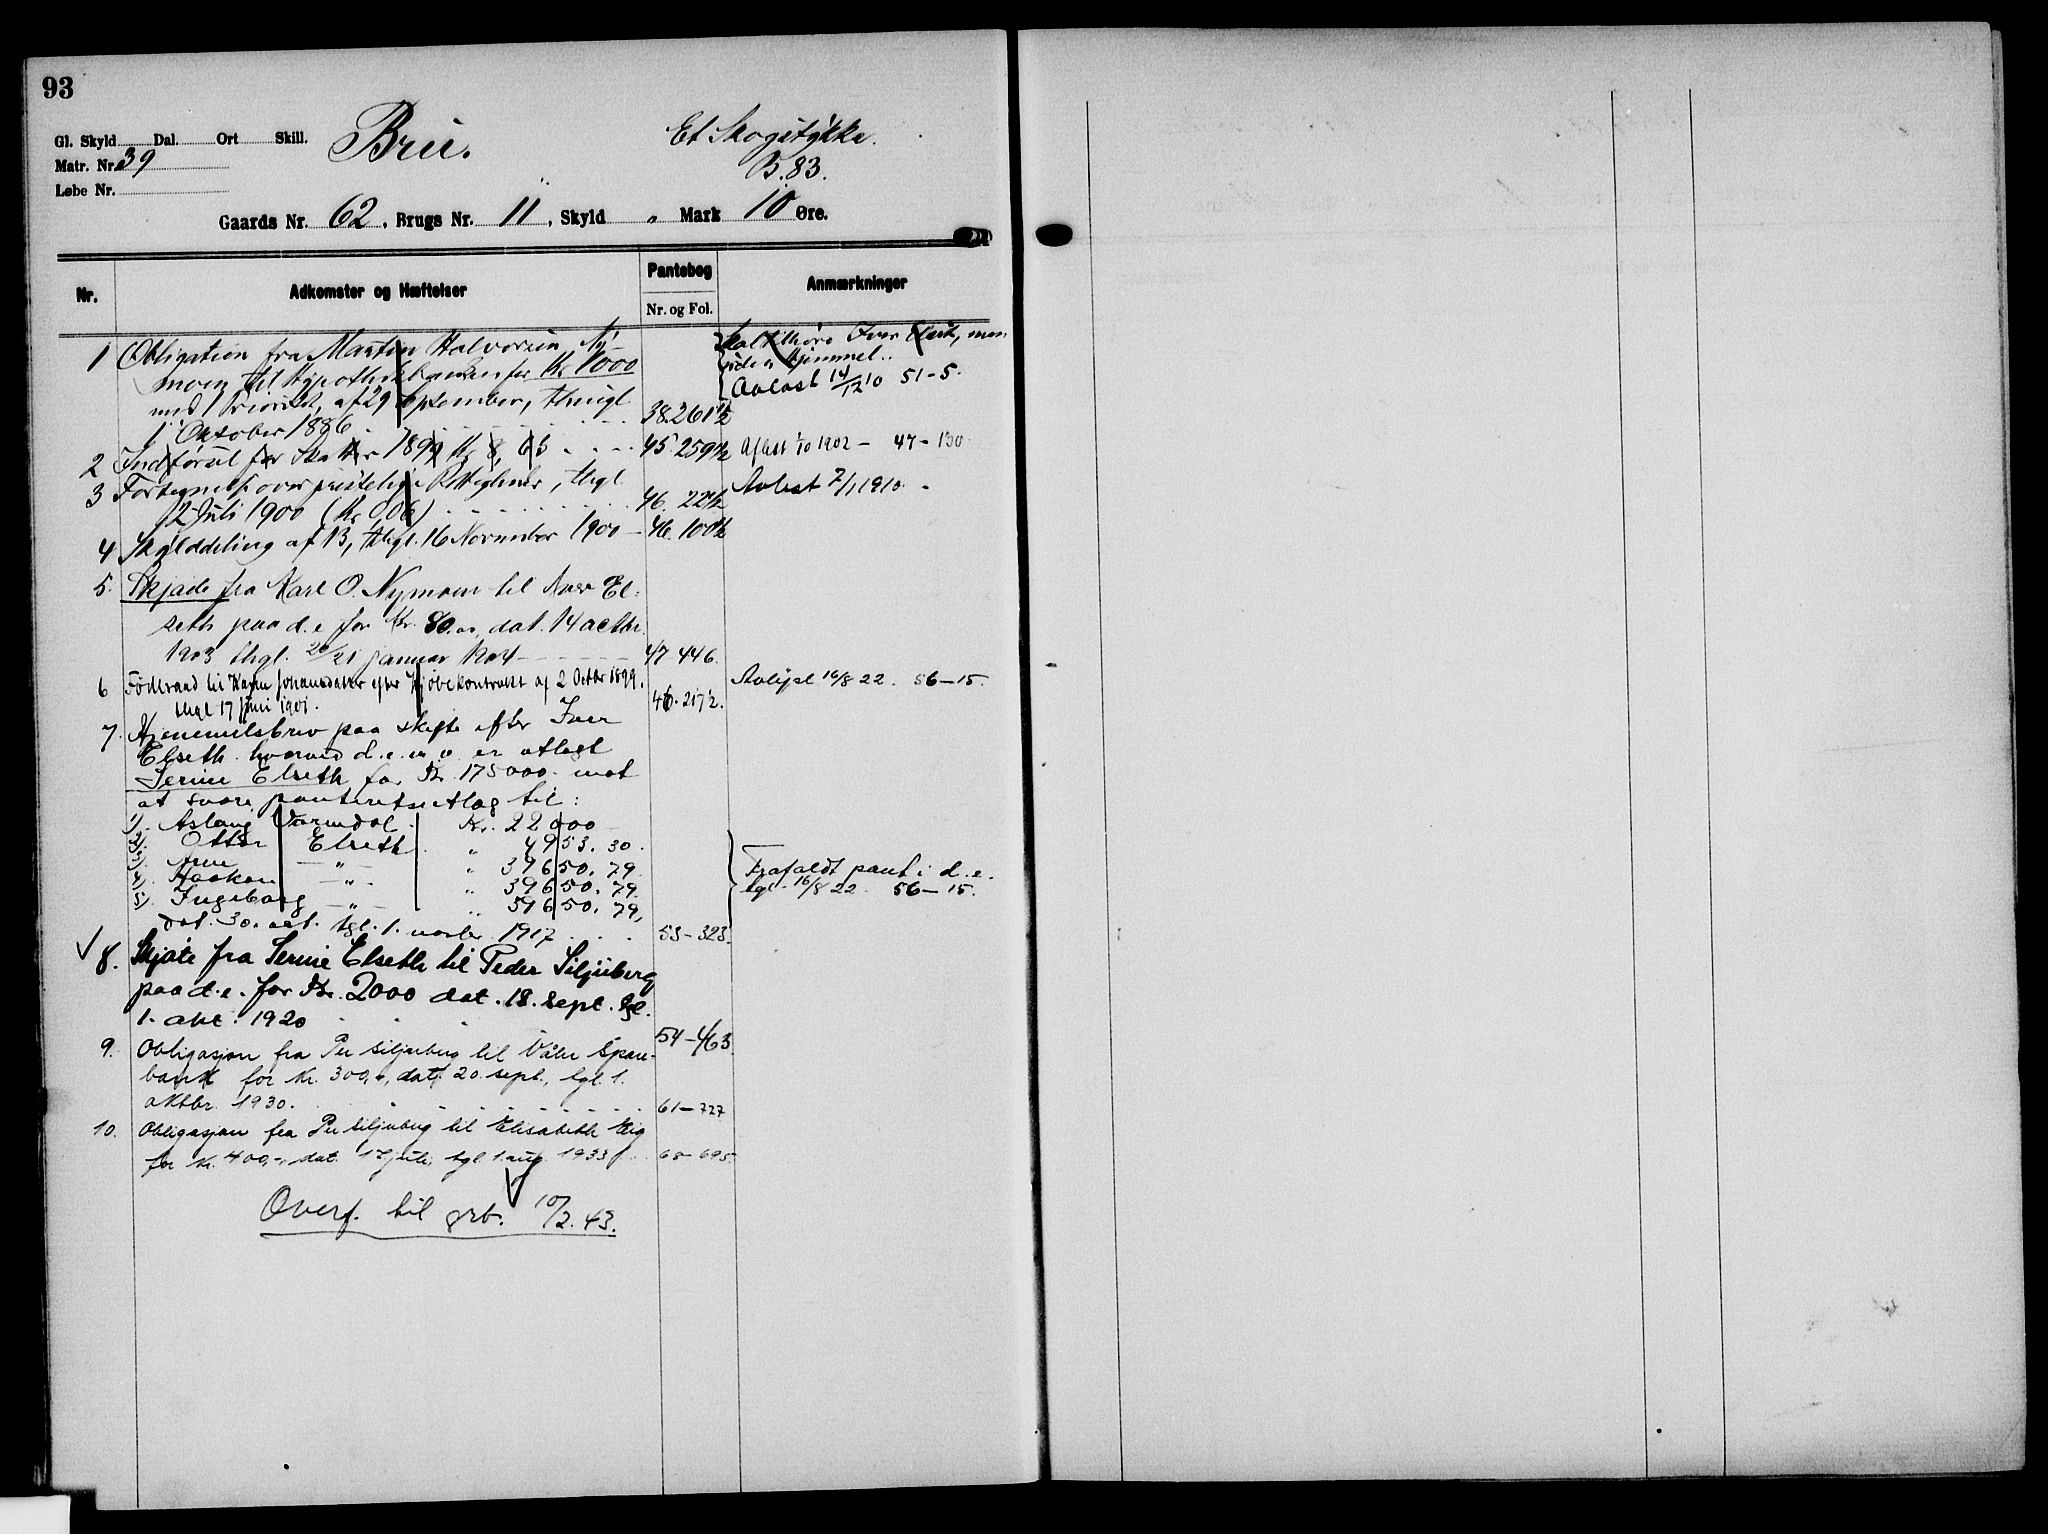 93
Gl. Skyld Dal. Ort Skill.
Matr. Nr. 39
Løbe Nr.
Brie.
Et Skogstykke.
B. 83.
Gaards Nr. 62, Brugs Nr. 11, Skyld " Mark 10 Øre.
Nr.
Adkomster og Hæftelser
Pantebog
Nr. og Fol.
Anmærkninger
1 Obligation fra Martin Halvorsen Ny-
moen til Hypothekbanken for Kr 1000
med 1 Prioritet, af 29 September, thingl.
1 Oktober 1886 38.261½
Skal tilhøre Iver Elset, men
uden hjemmel.
Avløst 14/12 10 51-5.
2 Indførsel for Skatter 1899 Kr 8,65 45 259½ Aflæst 1/10 1902 - 47-130
3 Fortegnelse over præstelige Rettigheder, thgl
12 Juli 1900 (Kr 0,06) 46. 22½ Avløst 7/1 1910.
4 Skylddeling af 13, thgl. 16 November 1900 - 46. 100½
5. Skjøde fra Karl O. Nymoen til Iver El-
seth paa d. e for Kr. 80.00, dat. 14 octbr.
1903 thgl. 20/21 januar 1904 47 446.
6 Føderaad til Karen Johansdatter efter Kjøbekontrakt af 2 Octbr 1899.
thgl 17 juni 1901. 46. 217½. Avlyst 16/8 22. 56-15.
7. Hjemmelsbrev paa skifte efter Iver
Elseth hvorved d. e. m. v. er utlagt
Serine Elseth for Kr. 175000.- mot
at svare panteretsutlæg til:
1). Aslaug Kr. 22000
2). Otter Elseth " 4953. 30.
3). Arne " " 39650. 79.
4). Haakon " " 39650. 79.
5). Ingeborg " " 39650. 79.
dat. 30. okt. tgl. 1. novbr. 1917 53-323.
Frafaldt pant i d. e.
tgl. 16/8 22. 56-15.
8. Skjøte fra Serine Elseth til Peder Siljuberg
paa d. e. for Kr. 2000 dat. 18. sept. tgl.
1. okt. 1920 54-463.
9. Obligasjon fra Per Siljuberg til Våler Spare-
bank for Kr. 300,-, dat. 20. sept., tgl. 1.
oktbr. 1930. 61-727
10. Obligasjon fra Per Siljuberg til Elisabeth Eig
for Kr. 400,-, dat. 17 juli, tgl. 1. aug. 1933 63-695.
Overf. til grb. 10/2. 43.